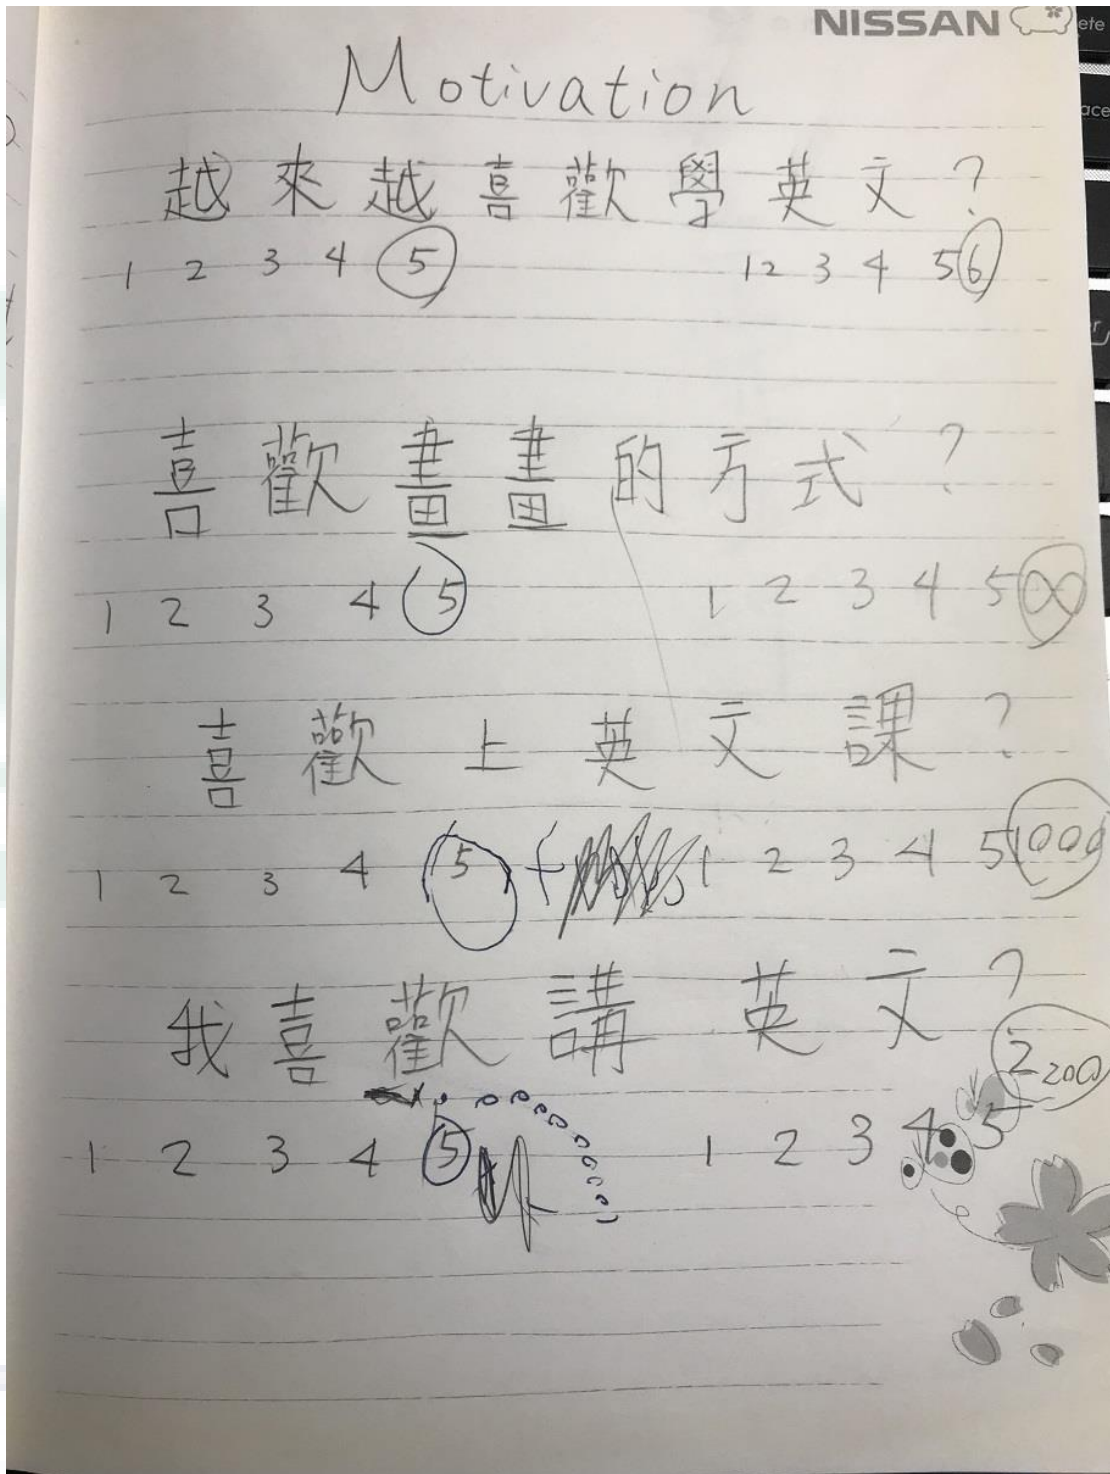 NISSAN
ete
ace
Motivation
越來越喜歡學英文?
1 2 3 4 5 1 2 3 4 5 6
喜歡畫畫的方式?
1 2 3 4 5 1 2 3 4 5 ∞
喜歡上英文課?
1 2 3 4 5 + 1 2 3 4 5 1000
我喜歡講英文?
2200
1 2 3 4 5 1 2 3 4 5